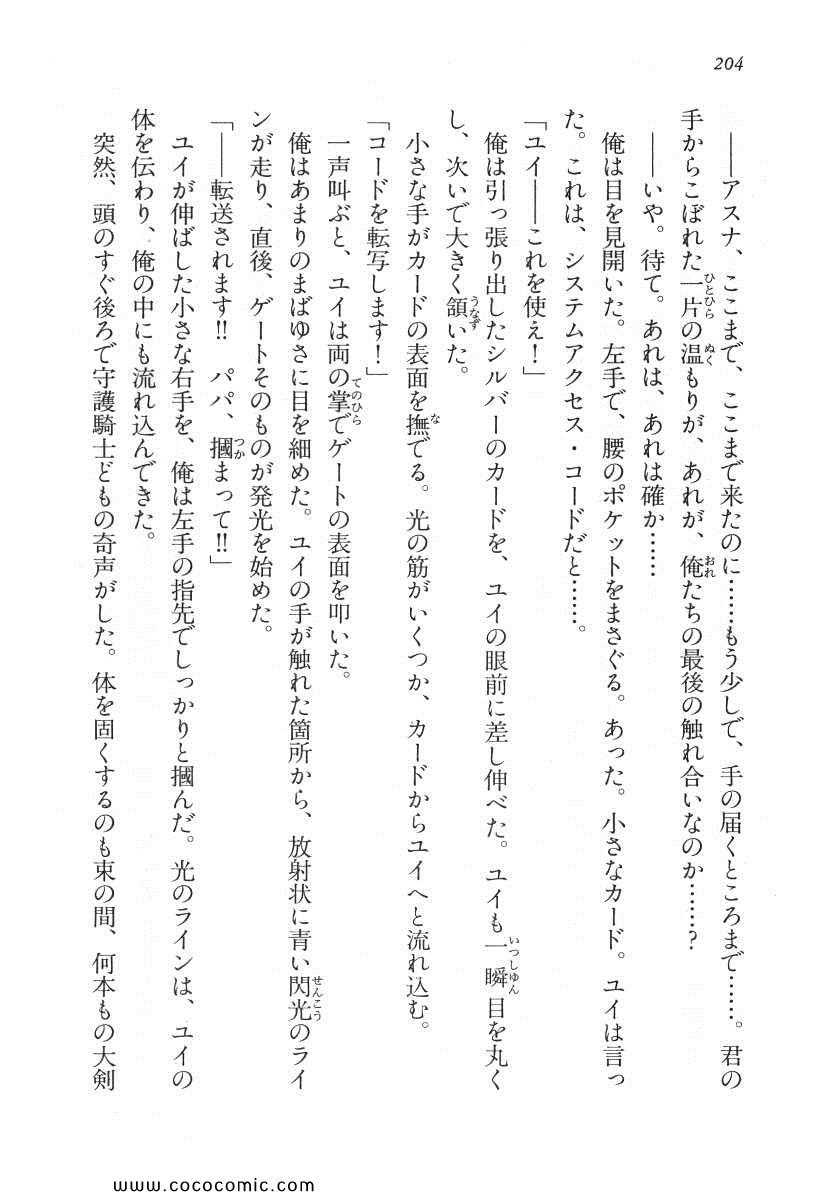 204
――アスナ、ここまで、ここまで来たのに……もう少しで、手の届くところまで……。君の
手からこぼれた一片の温もりが、あれが、俺たちの最後の触れ合いなのか……？
――いや。待て。あれは、あれは確か……
俺は目を見開いた。左手で、腰のポケットをまさぐる。あった。小さなカード。ユイは言っ
た。これは、システムアクセス・コードだと……。
「ユイ――これを使え！」
俺は引っ張り出したシルバーのカードを、ユイの眼前に差し伸べた。ユイも一瞬目を丸く
し、次いで大きく頷いた。
小さな手がカードの表面を撫でる。光の筋がいくつか、カードからユイへと流れ込む。
「コードを転写します！」
一声叫ぶと、ユイは両の掌でゲートの表面を叩いた。
俺はあまりのまばゆさに目を細めた。ユイの手が触れた箇所から、放射状に青い閃光のライ
ンが走り、直後、ゲートそのものが発光を始めた。
「――転送されます!!　パパ、摑まって!!」
ユイが伸ばした小さな右手を、俺は左手の指先でしっかりと摑んだ。光のラインは、ユイの
体を伝わり、俺の中にも流れ込んできた。
突然、頭のすぐ後ろで守護騎士どもの奇声がした。体を固くするのも束の間、何本もの大剣
www.cococomic.com